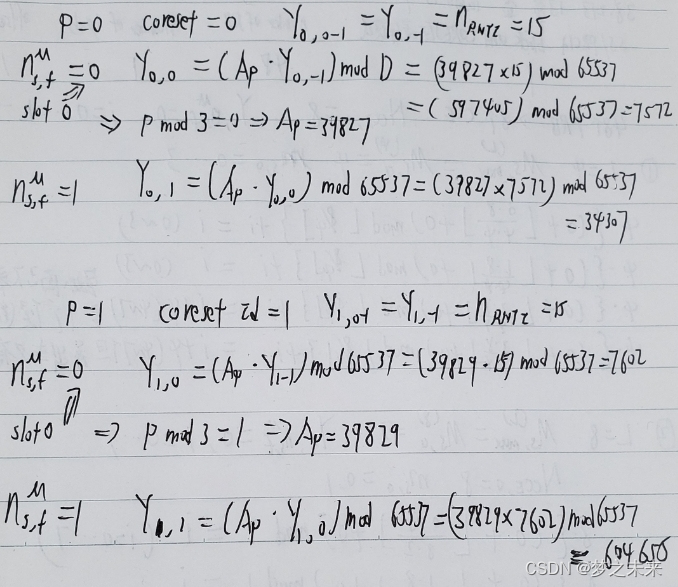 P=0 coreset=0 Y₀,₀₋₁ = Y₀,₋₁ = nRNTI = 15
n^μ_s,f = 0 Y₀,₀ = (Ap · Y₀,₋₁) mod D = (39827×15) mod 65537
= (597405) mod 65537 = 7572
slot 0 ⇒ p mod 3=0 ⇒ Ap=39827
n^μ_s,f = 1 Y₀,₁ = (Ap · Y₀,₀) mod 65537 = (39827×7572) mod 65537
= 34307
P=1 coreset id=1 Y₁,₀₋₁ = Y₁,₋₁ = nRNTI = 15
n^μ_s,f = 0 Y₁,₀ = (Ap · Y₁,₋₁) mod 65537 = (39829 · 15) mod 65537 = 7602
slot 0 ⇒ p mod 3=1 ⇒ Ap=39829
n^μ_s,f = 1 Y₁,₁ = (Ap · Y₁,₀) mod 65537 = (39829×7602) mod 65537
= 604650
CSDN @梦之未来